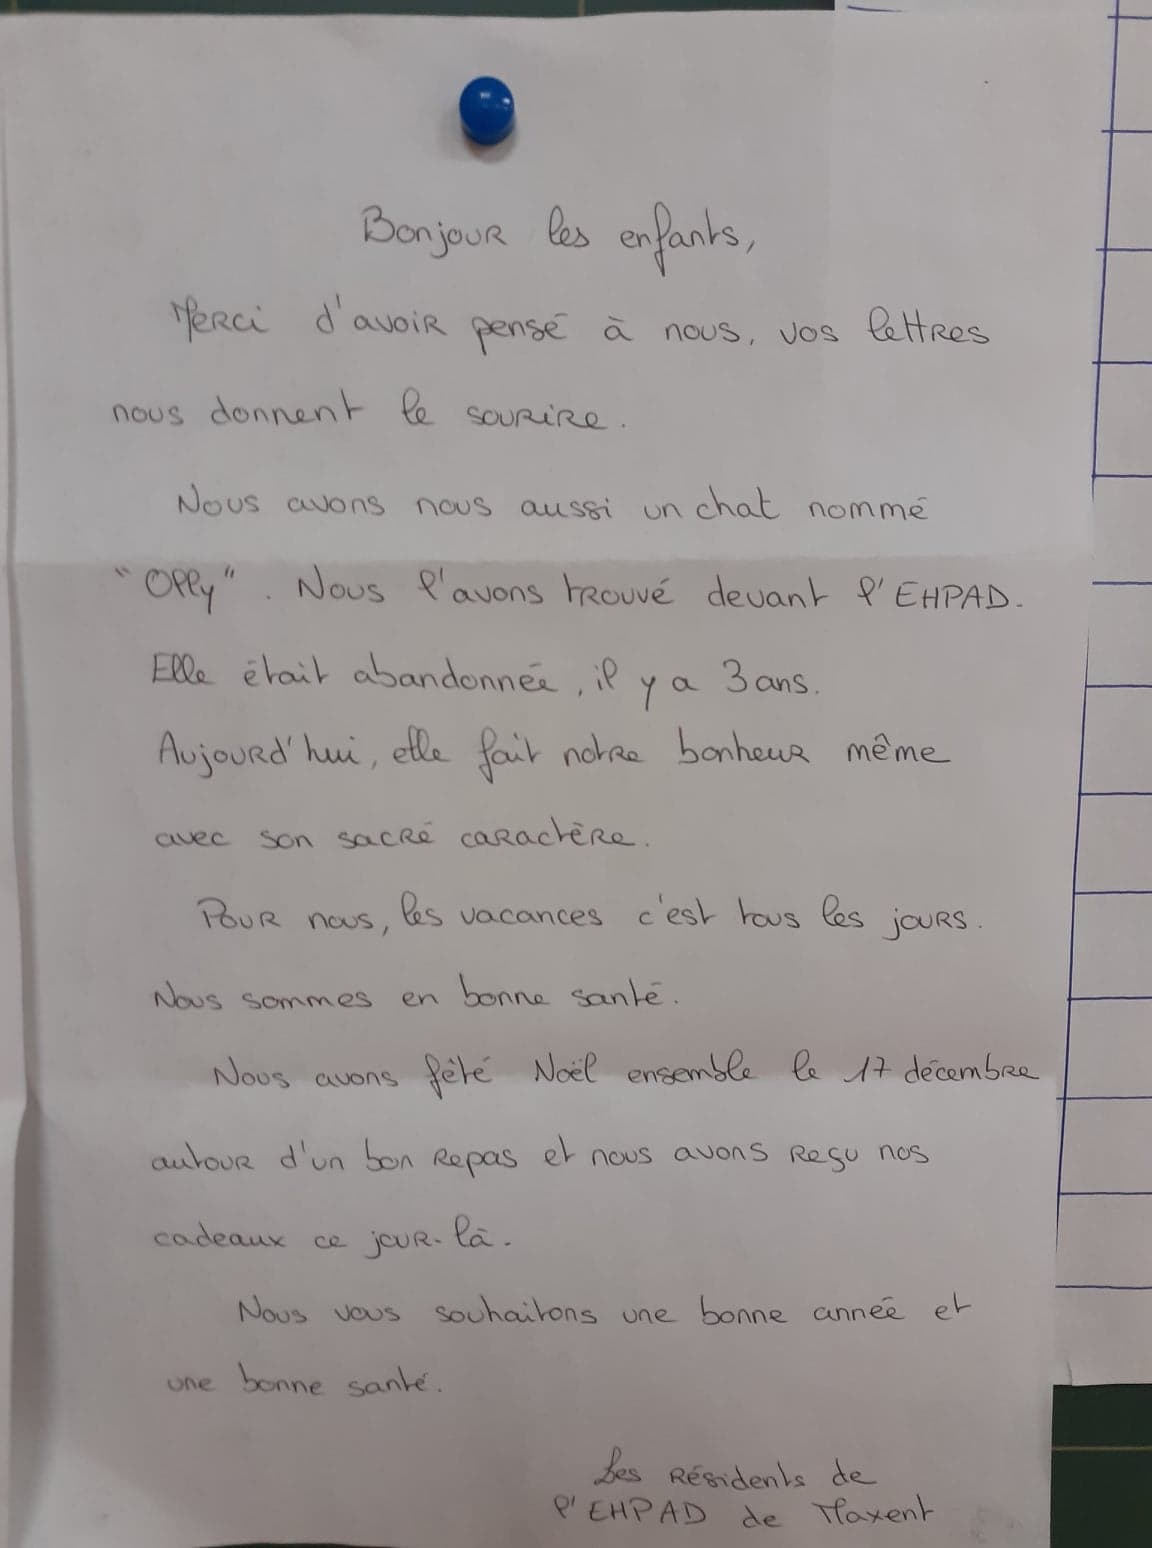 Bonjour les enfants,
Merci d'avoir pensé à nous, vos lettres
nous donnent le sourire.
Nous avons nous aussi un chat nommé
"Olly". Nous l'avons trouvé devant l'EHPAD.
Elle était abandonnée, il y a 3 ans.
Aujourd'hui, elle fait notre bonheur même
avec son sacré caractère.
Pour nous, les vacances c'est tous les jours.
Nous sommes en bonne santé.
Nous avons fêté Noël ensemble le 17 décembre
autour d'un bon repas et nous avons reçu nos
cadeaux ce jour-là.
Nous vous souhaitons une bonne année et
une bonne santé.
Les résidents de
l'EHPAD de Maxent